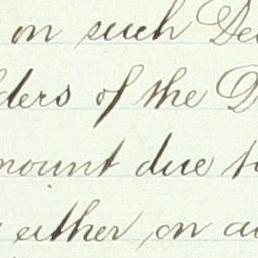 on such De
ders of the D
mount due t
either on a